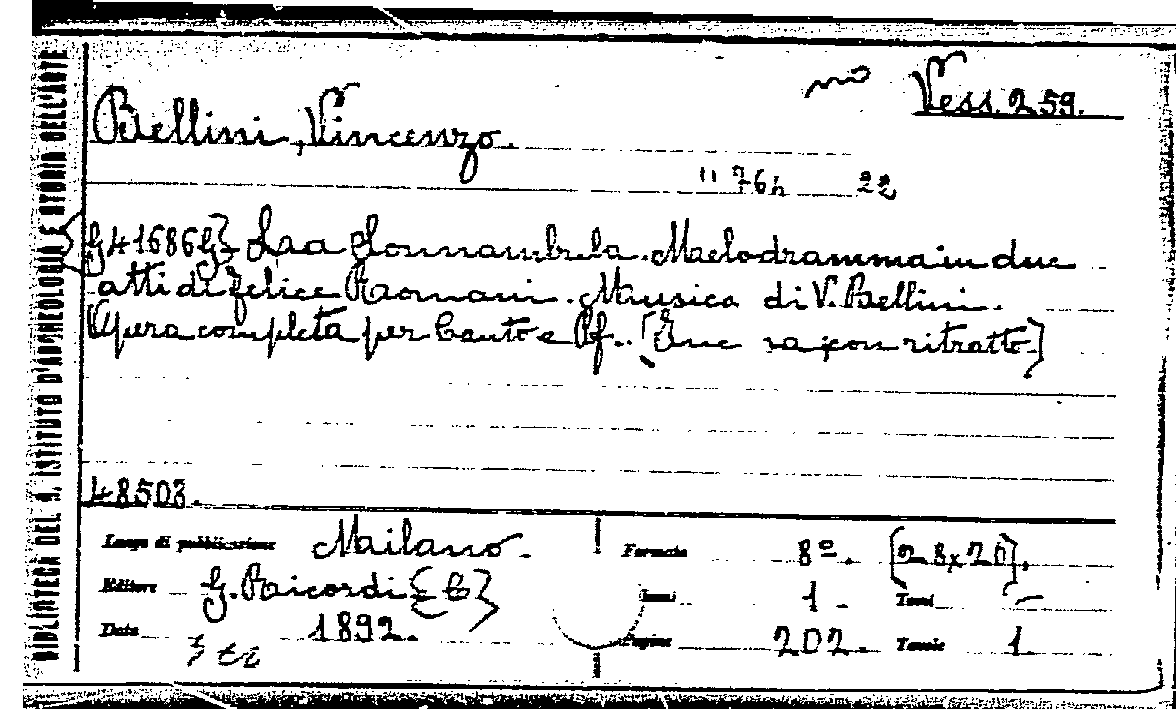 BIBLIOTECA DEL R. ISTITUTO D'ARCHEOLOGIA E STORIA DELL'ARTE
Vess. 259.
Bellini, Vincenzo.
22
41686 La Sonnambula. Melodramma in due
atti di Felice Romani. Musica di V. Bellini.
Opera completa per Canto e Pf.. con ritratto]
48503.
Luogo di pubblicazione Milano.
Formato 8º. [28x20].
Editore G. Ricordi {C}
1 - Tomi —
Data 1892.
Pagine 202. Tavole 1